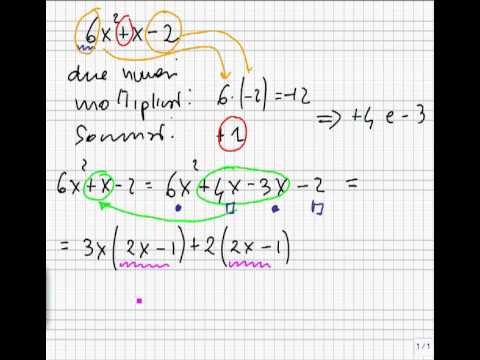 6x²+x-2
due numeri
moltiplicati: 6·(-2)=-12
⇒ +4 e -3
Sommati: +1
6x²+x-2 = 6x²+4x-3x-2 =
= 3x(2x-1)+2(2x-1)
1/1